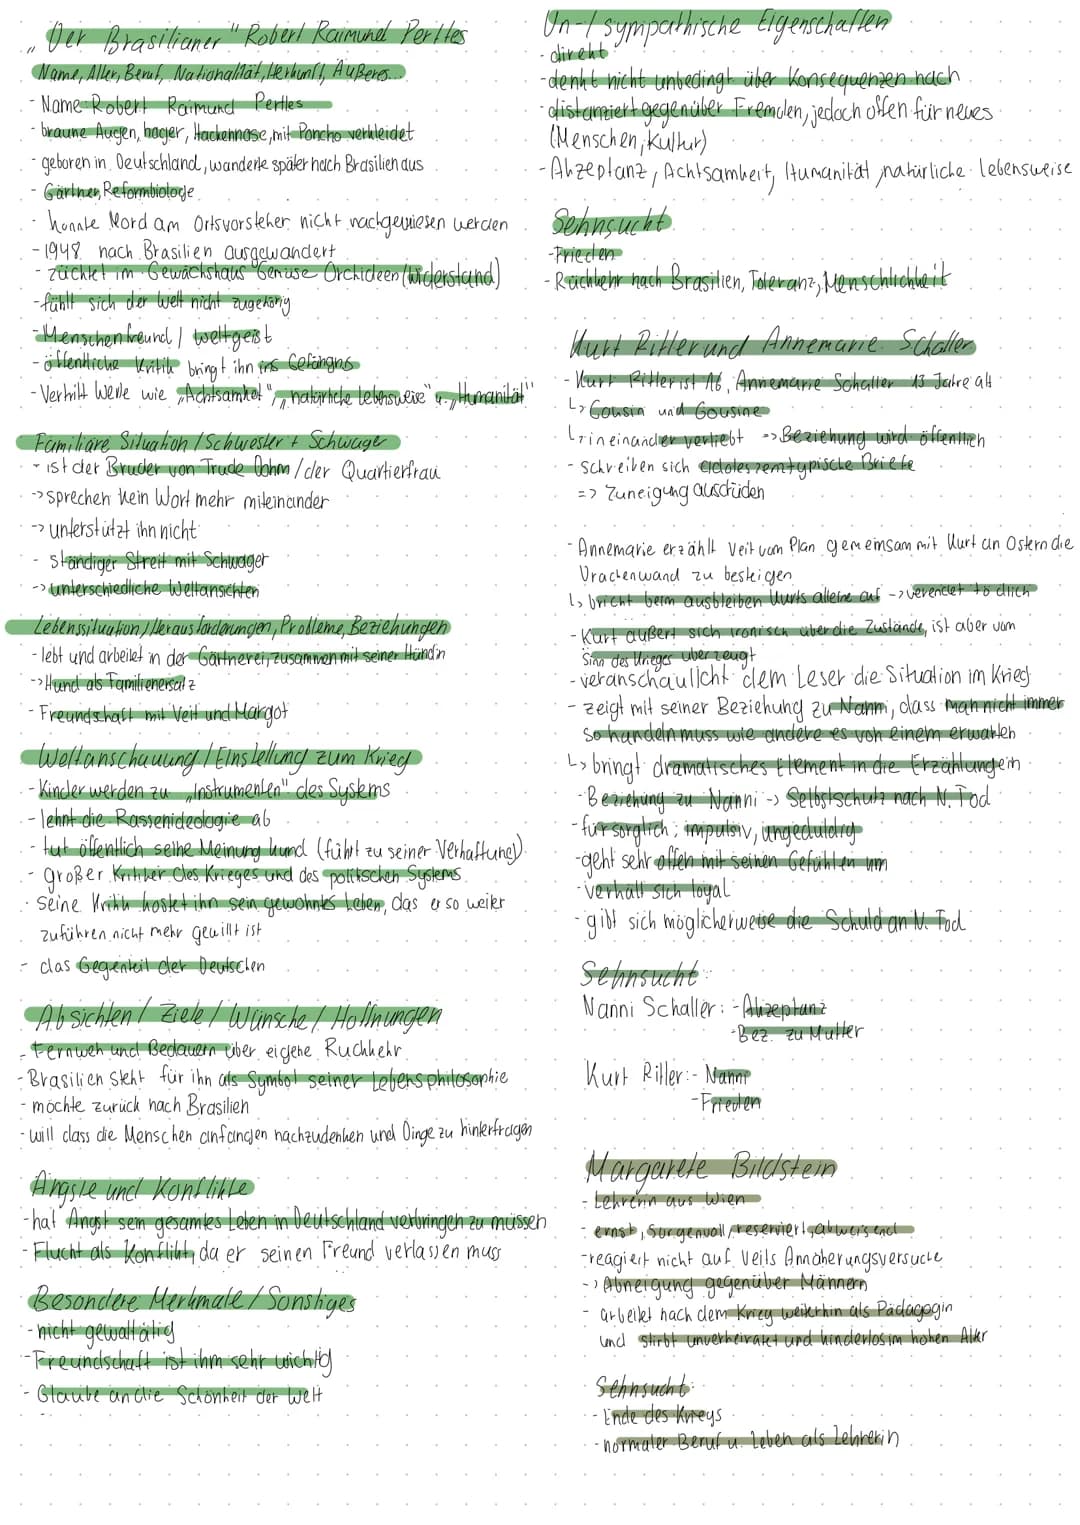 „Der Brasilianer" Robert Raimund Perttes
Name, Alter, Beruf, Nationalität, Herkunft, Äußeres...
- Name: Robert Raimund Perttes
- braune Augen, hager, Hackennase, mit Poncho verkleidet
- geboren in Deutschland, wanderte später nach Brasilien aus
- Gärtner, Reformbiologe
- konnte Mord am Ortsvorsteher nicht nachgewiesen werden
- 1948 nach Brasilien ausgewandert
- züchtet im Gewächshaus Gemüse Orchideen (widerstand)
- fühlt sich der Welt nicht zugehörig
- Menschenfreund / weltgeist
- öffentliche Kritik bringt ihn ins Gefängnis
- Vertritt Werte wie „Achtsamkeit", „natürliche Lebensweise" u. „Humanität"
Familiäre Situation / Schwester + Schwager
- ist der Bruder von Trude Dohm / der Quartierfrau
-> sprechen kein Wort mehr miteinander
-> unterstützt ihn nicht
- ständiger Streit mit Schwager
-> unterschiedliche Weltansichten
Lebenssituation, Herausforderungen, Probleme, Beziehungen
- lebt und arbeitet in der Gärtnerei, zusammen mit seiner Hündin
-> Hund als Familienersatz
- Freundschaft mit Veit und Margot
Weltanschauung / Einstellung zum Krieg
- Kinder werden zu „Instrumenten" des Systems
- lehnt die Rassenideologie ab
- tut öffentlich seine Meinung kund (führt zu seiner Verhaftung)
- großer Kritiker des Krieges und des politschen Systems
- Seine Kritik kostet ihn sein gewohntes Leben, das er so weiter
zuführen nicht mehr gewillt ist
- das Gegenteil der Deutschen
Absichten / Ziele / Wünsche / Hoffnungen
- Fernweh und Bedauern über eigene Rückkehr
- Brasilien steht für ihn als Symbol seiner Lebensphilosophie
- möchte zurück nach Brasilien
- will dass die Menschen anfangen nachzudenken und Dinge zu hinterfragen
Ängste und Konflikte
- hat Angst sein gesamtes Leben in Deutschland verbringen zu müssen
- Flucht als Konflikt, da er seinen Freund verlassen muss
Besondere Merkmale / Sonstiges
- nicht gewalttätig
- Freundschaft ist ihm sehr wichtig
- Glaube an die Schönheit der Welt
Un-/ sympathische Eigenschaften
- direkt
- denkt nicht unbedingt über Konsequenzen nach
- distanziert gegenüber Fremden, jedoch offen für neues
(Menschen, Kultur)
- Akzeptanz, Achtsamkeit, Humanität, natürliche Lebensweise
Sehnsucht
- Frieden
- Rückkehr nach Brasilien, Toleranz, Menschlichkeit
Kurt Ritter und Annemarie Schaller
- Kurt Ritter ist 16, Annemarie Schaller 13 Jahre alt
↳ Cousin und Cousine
↳ ineinander verliebt -> Beziehung wird öffentlich
- schreiben sich adoleszenztypische Briefe
=> Zuneigung ausdrüden
- Annemarie erzählt Veit vom Plan gemeinsam mit Kurt an Ostern die
Drachenwand zu besteigen
↳ bricht beim ausbleiben Kurts alleine auf -> verendet tödlich
- Kurt äußert sich ironisch über die Zustände, ist aber vom
Sinn des Krieges überzeugt
- veranschaulicht dem Leser die Situation im Krieg
- zeigt mit seiner Beziehung zu Nanni, dass man nicht immer
so handeln muss wie andere es von einem erwarten
↳ bringt dramatisches Element in die Erzählung ein
- Beziehung zu Nanni -> Selbstschutz nach N. Tod
- fürsorglich; impulsiv, ungeduldig
- geht sehr offen mit seinen Gefühlen um
- verhält sich loyal
- gibt sich möglicherweise die Schuld an N. Tod
Sehnsucht:
Nanni Schaller: - Akzeptanz
- Bez. zu Mutter
Kurt Ritter: - Nanni
- Frieden
Margarete Bildstein
- Lehrerin aus Wien
- ernst, sorgenvoll, reserviert, abweisend
- reagiert nicht auf Veits Annäherungsversuche
-> Abneigung gegenüber Männern
- arbeitet nach dem Krieg weiterhin als Pädagogin
und stirbt unverheiratet und kinderlos im hohen Alter
Sehnsucht:
- Ende des Kriegs
- normaler Beruf u. Leben als Lehrerin